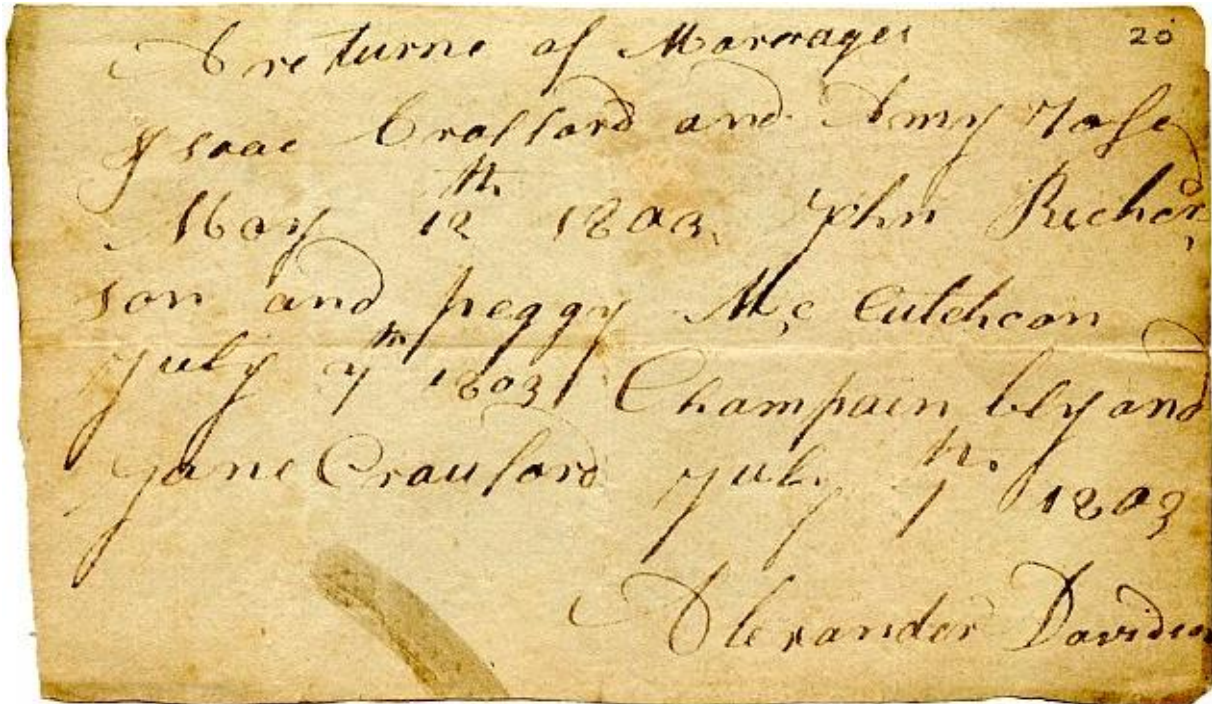 A returne of Marerages 20
Isaac Crafford and Amy
May 12th 1803 John Richer
son and peggy Mc Cutcheon
July 7th 1803 Champain bly and
Jane Crauford July 7th 1803
Alexander Davidson